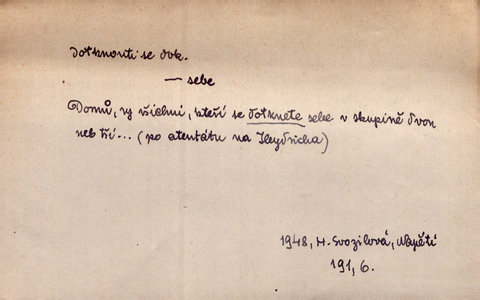 dotknouti se dok.
— sebe
Domů, vy všichni, kteří se dotknete sebe v skupině dvou
neb tří... (po atentátu na Heydricha)
1948, H. Svozilová, Napětí
191, 6.